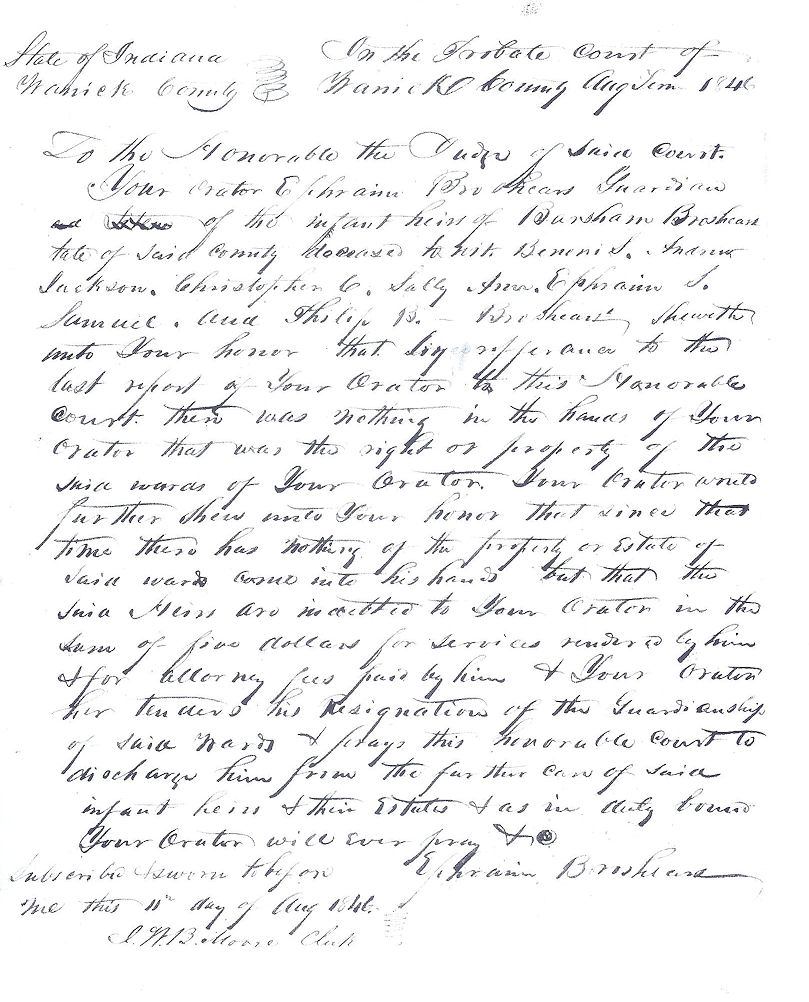 State of Indiana
Warrick County
In the Probate Court of
Warrick County Aug Term 1846
To the Honorable the Judge of said court.
Your orator Ephraim Broshears Guardian
of the infant heirs of Barsham Broshears
late of said county deceased to wit. Benoni S. Andrew
Jackson. Christopher C. Sally Ann. Ephraim S.
Samuel. and Philip B. - Broshears sheweth
unto Your honor that by refferance to the
last report of Your Orator to this Honorable
court. there was nothing in the hands of Your
Orator that was the right or property of the
said wards of Your Orator. Your Orator would
further shew unto Your honor that since that
time there has nothing of the property or Estate of
said wards come into his hands but that the
said Heirs are indebted to Your Orator in the
sum of five dollars for services rendered by him
& for attorney fees paid by him & Your Orator
her tenders his Resignation of the Guardianship
of said Wards & prays this honorable Court to
discharge him from the further care of said
infant heirs & their Estates & as in duty bound
Your Orator will Ever pray &c
Ephraim Broshears
Subscribed & sworn to before
me this 11th day of Aug 1846.
Moore Clerk